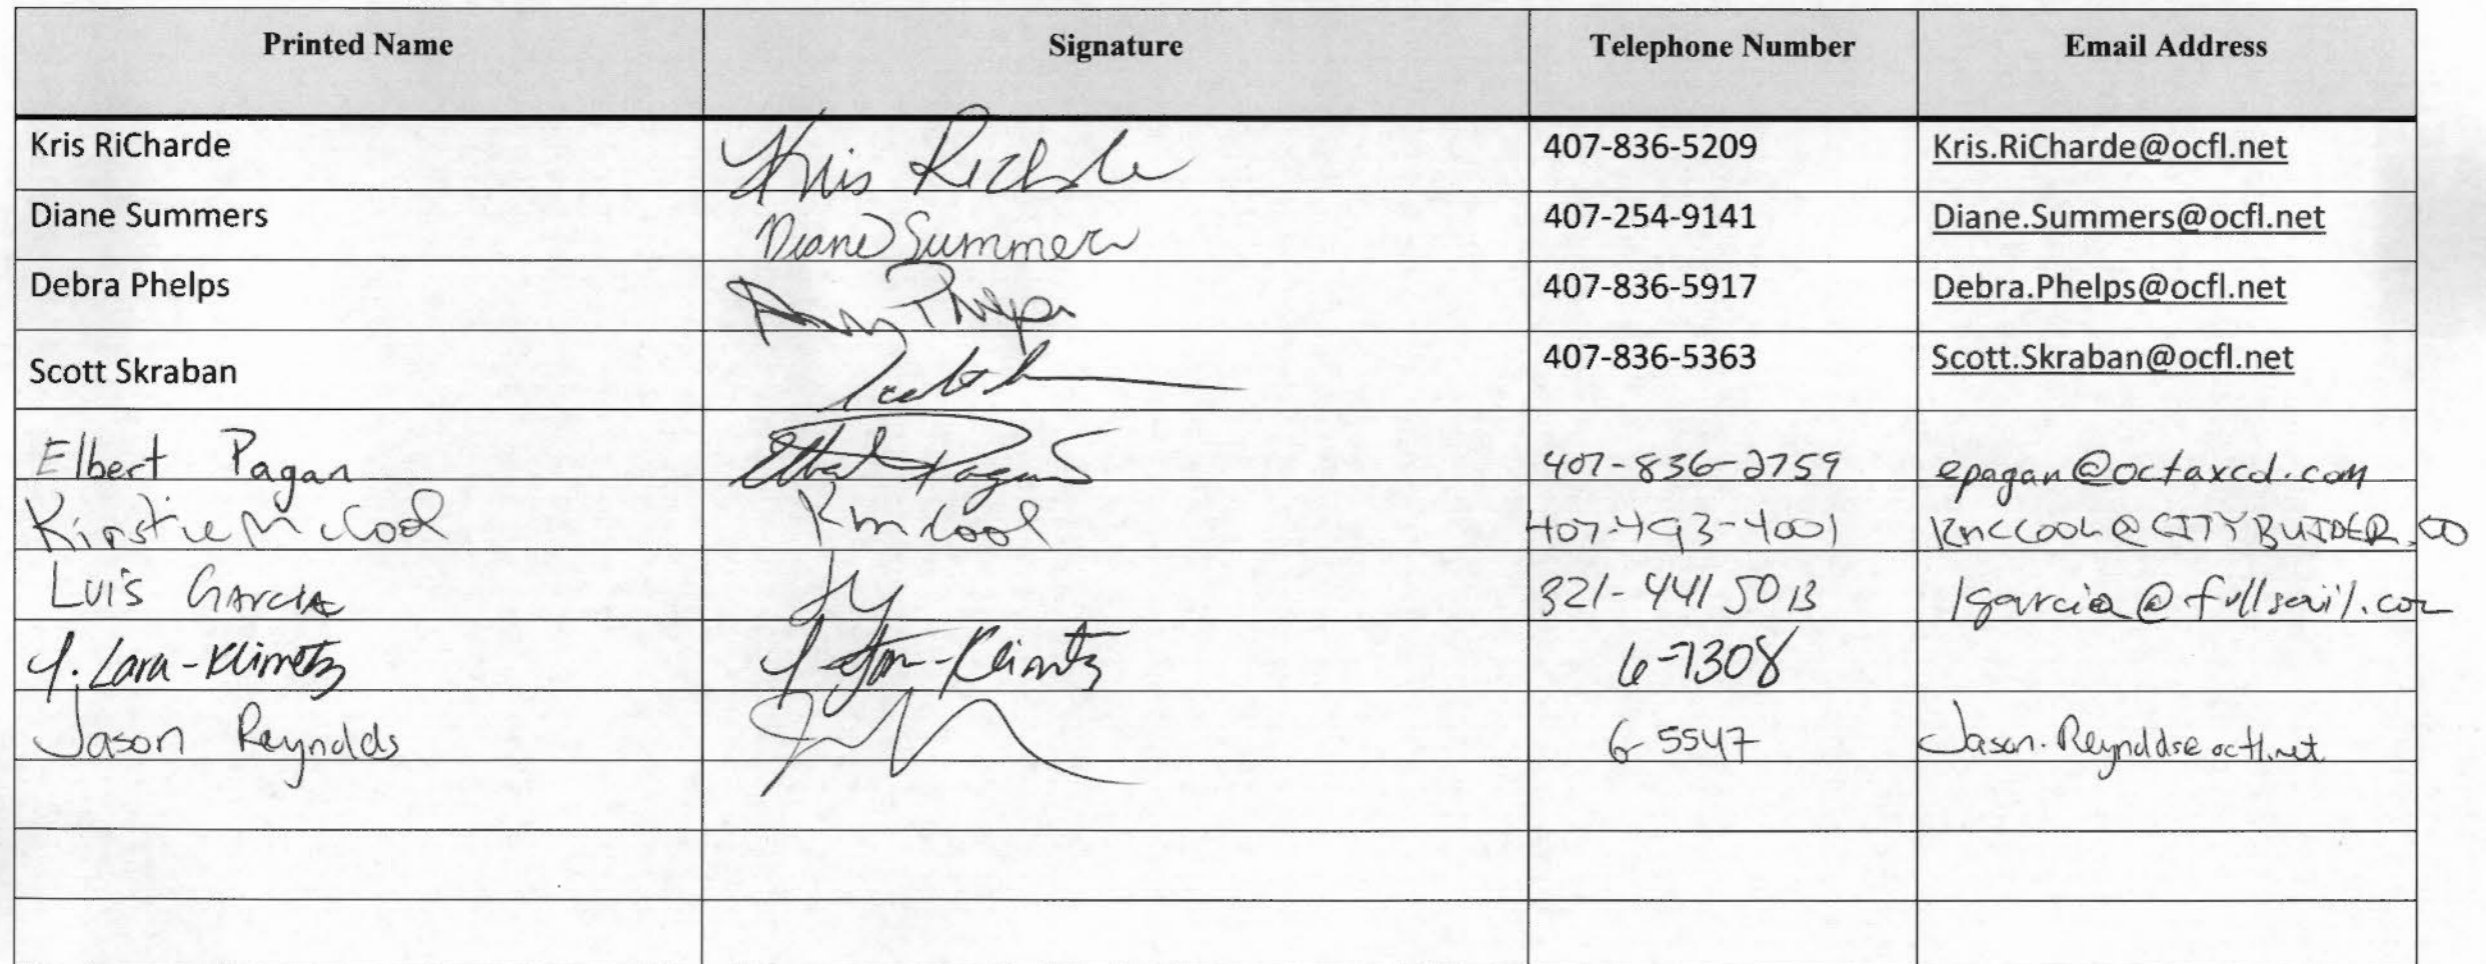 Printed Name Signature Telephone Number Email Address
Kris RiCharde Kris Richarde 407-836-5209 Kris.RiCharde@ocfl.net
Diane Summers Diane Summers 407-254-9141 Diane.Summers@ocfl.net
Debra Phelps 407-836-5917 Debra.Phelps@ocfl.net
Scott Skraban 407-836-5363 Scott.Skraban@ocfl.net
Elbert Pagan Elbert Pagan 407-836-2759 epagan@octaxcd.com
Kirstie McCool KMcCool 407-493-4001 KMCCOOL@CITYBUIDER.CO
Luis GARCIA 321-441 5013 lgarcia@fullsail.com
Y. Lara-Klimetz 6-7308
Jason Reynolds 6-5547 Jason.Reynolds@ocfl.net